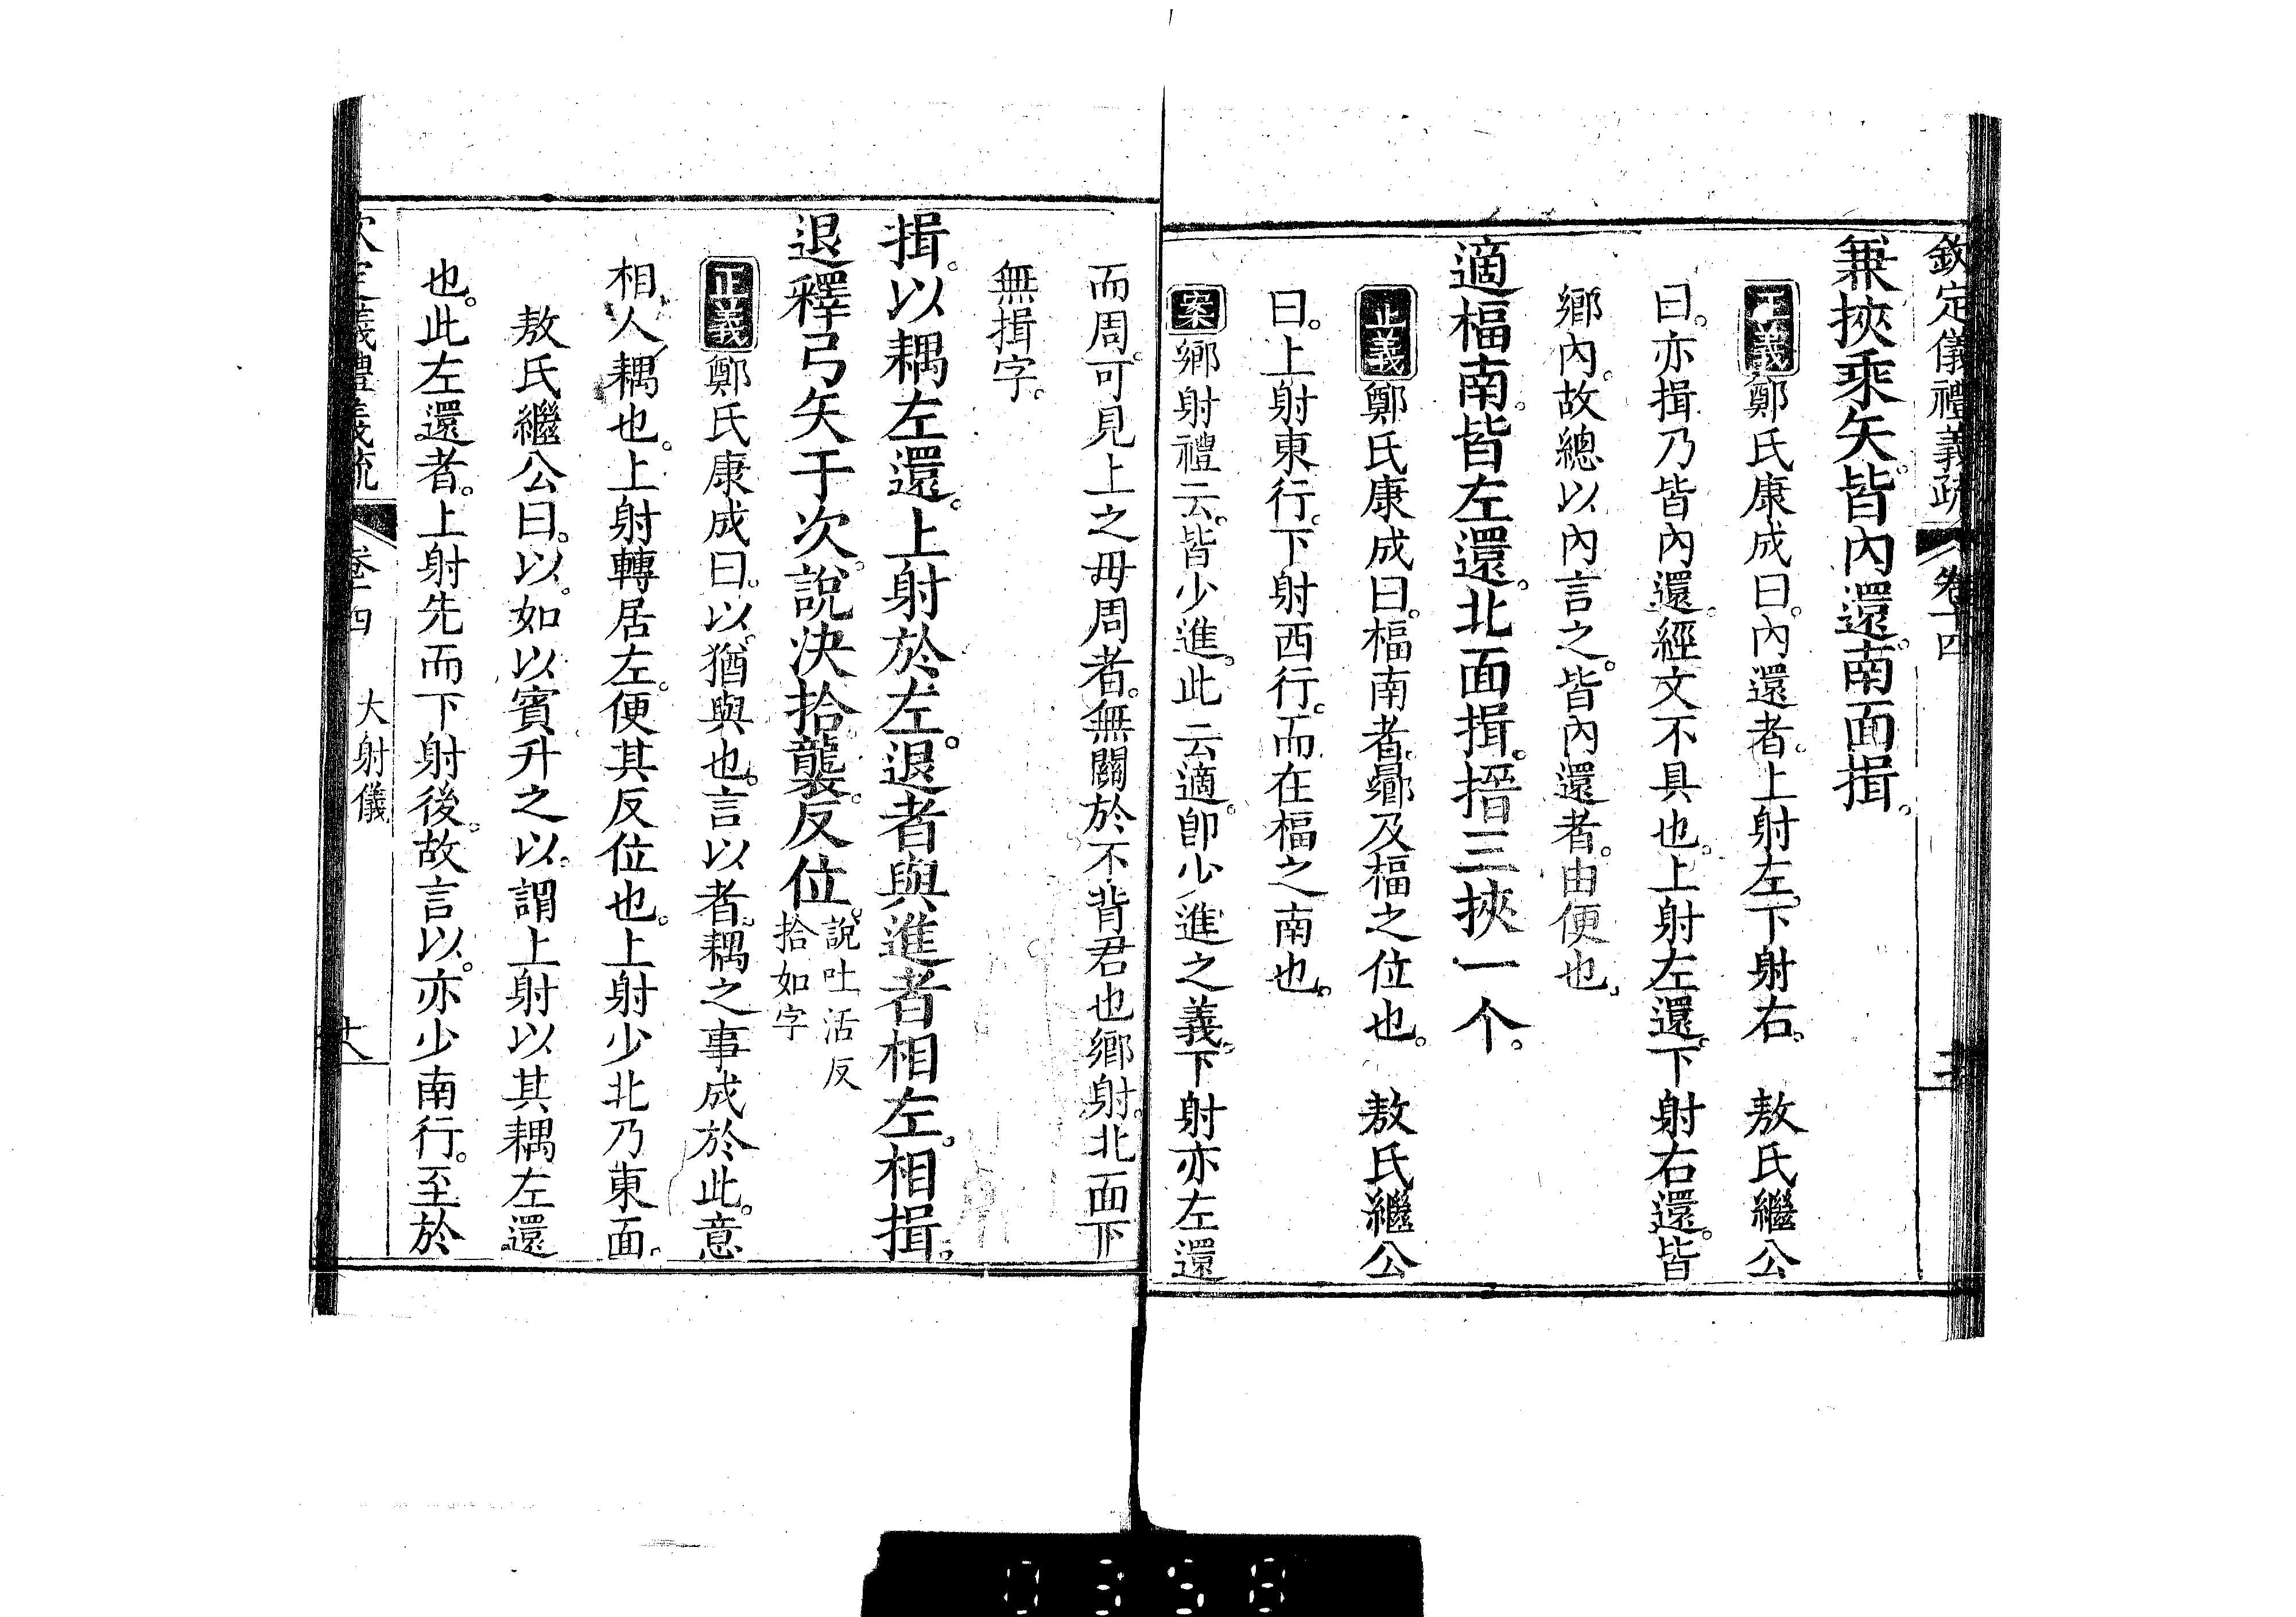 欽定儀禮義疏　卷十四
兼挾乘矢。皆內還。南面揖。
正義鄭氏康成曰。內還者。上射左。下射右。　敖氏繼公
曰。亦揖乃皆內還。經文不具也。上射左還。下射右還。皆
鄉內。故總以內言之。皆內還者。由便也。
適楅南。皆左還。北面揖。搢三挾一个。
正義鄭氏康成曰。楅南者。鄉及楅之位也。　敖氏繼公
曰。上射東行。下射西行。而在楅之南也。
案鄉射禮云。皆少進。此云適。卽少進之義。下射亦左還
而周。可見上之毋周者。無關於不背君也鄉射。北面下
無揖字。
揖。以耦左還。上射於左。退者與進者相左。相揖。
退釋弓矢于次。說決拾。襲。反位。說吐活反
拾如字
正義鄭氏康成曰。以。猶與也。言以者。耦之事成於此。意
相人耦也。上射轉居左。便其反位也。上射少北乃東面。
敖氏繼公曰。以。如以賓升之以。謂上射以其耦左還
也。此左還者。上射先而下射後。故言以。亦少南行。至於
欽定儀禮義疏　卷十四　大射儀　十八
0358